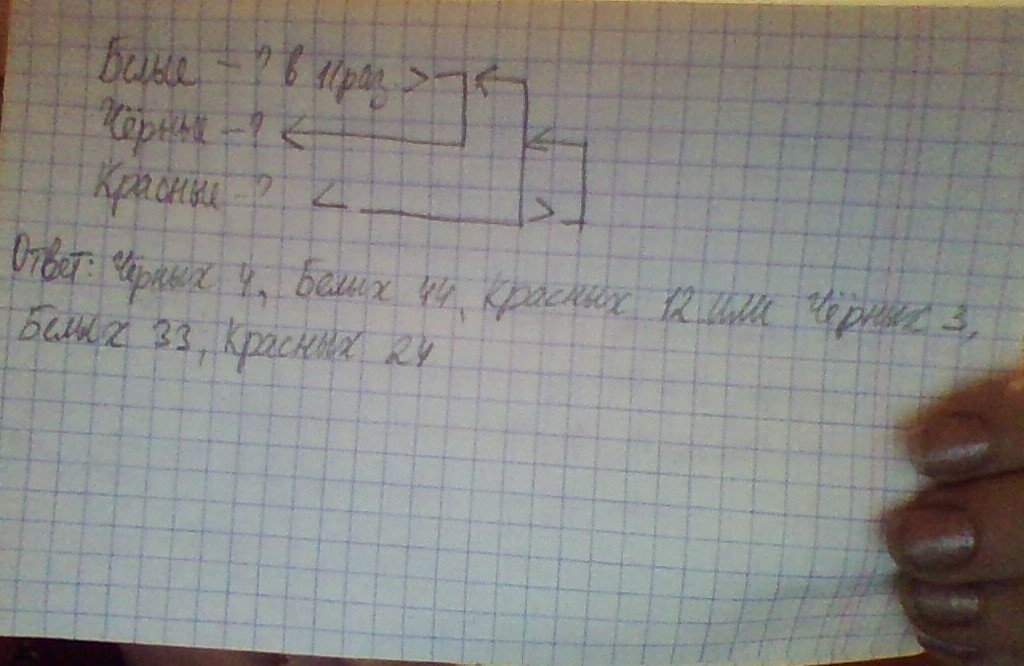 Белые - ? в 11 раз >
Чёрных - ?
Красные - ? < >
Ответ: Чёрных 4, Белых 44, Красных 12 или Чёрных 3,
Белых 33, Красных 24